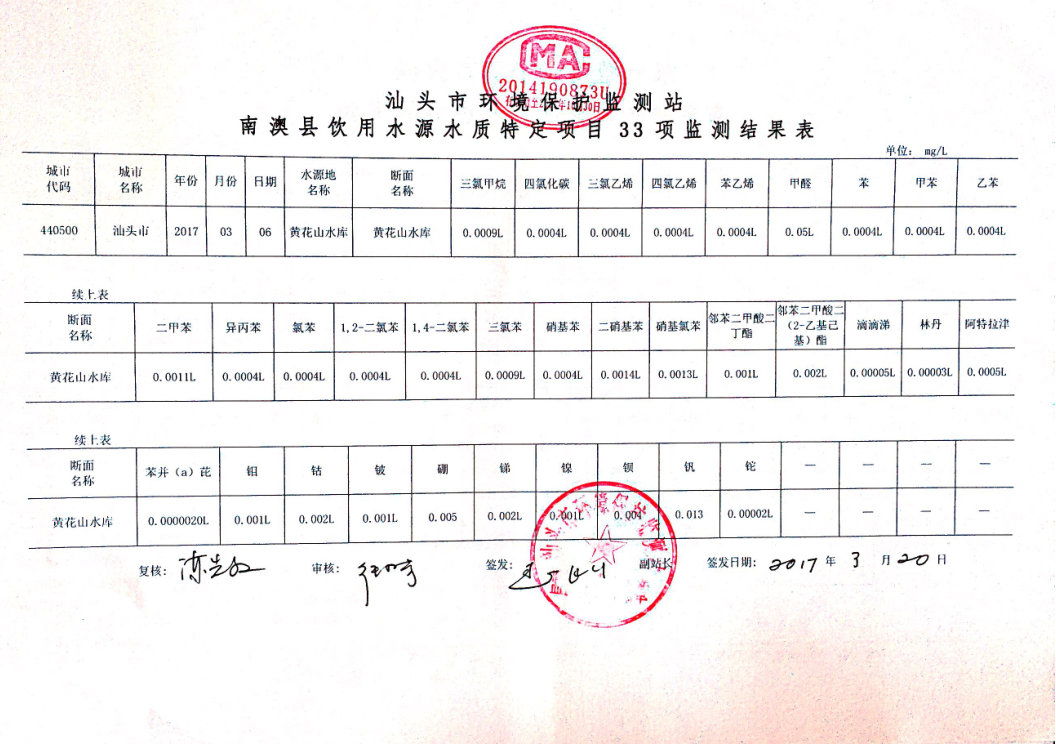 MA
2014190873U
汕头市环境保护监测站
南澳县饮用水源水质特定项目 33 项监测结果表
单位: mg/L
城市代码 城市名称 年份 月份 日期 水源地名称 断面名称 三氯甲烷 四氯化碳 三氯乙烯 四氯乙烯 苯乙烯 甲醛 苯 甲苯 乙苯
440500 汕头市 2017 03 06 黄花山水库 黄花山水库 0.0009L 0.0004L 0.0004L 0.0004L 0.0004L 0.05L 0.0004L 0.0004L 0.0004L
续上表
断面名称 二甲苯 异丙苯 氯苯 1,2-二氯苯 1,4-二氯苯 三氯苯 硝基苯 二硝基苯 硝基氯苯 邻苯二甲酸二丁酯 邻苯二甲酸二（2-乙基己基）酯 滴滴涕 林丹 阿特拉津
黄花山水库 0.0011L 0.0004L 0.0004L 0.0004L 0.0004L 0.0009L 0.0004L 0.0014L 0.0013L 0.001L 0.002L 0.00005L 0.00003L 0.0005L
续上表
断面名称 苯并（a）芘 钼 钴 铍 硼 锑 镍 钡 钒 铊 — — — —
黄花山水库 0.0000020L 0.001L 0.002L 0.001L 0.005 0.002L 0.001L 0.004 0.013 0.00002L — — — —
复核: 审核: 签发: 副站长 签发日期: 2017 年 3 月 20 日